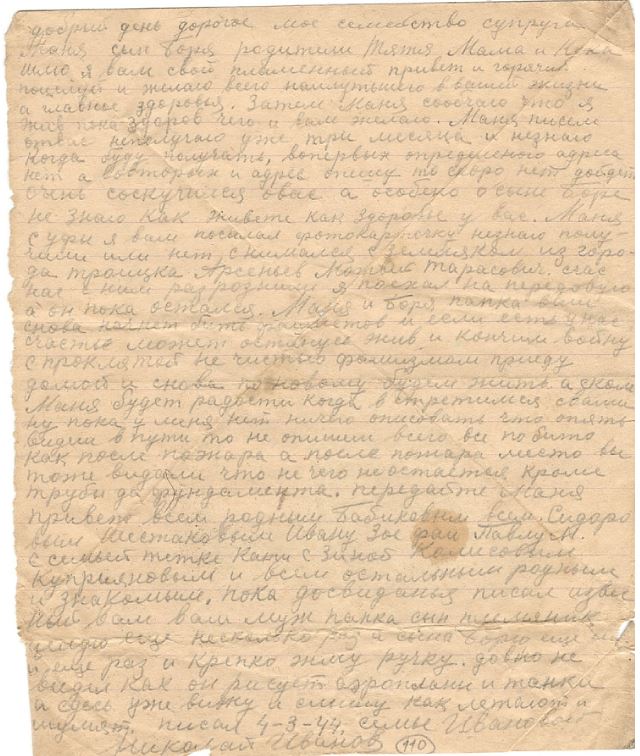 добрый день дорогое мое семейство супруга
Маня сын Боря родители Тятя Мама и
шлю я вам свой пламенный привет и горячий
поцелуй и желаю всего наилутьшего в вашей жизни
а главное здоровья. Затем Маня сообчаю что я
жив пока здоров чего и вам желаю. Маня писем
от вас неполучаю уже три месяца и незнаю
когда буду получать, вопервых определеного адреса
нет а вовторых и адрес опишу то скоро нет дойдет
очень соскучился овас а особено о сыне Боре
не знаю как живете как здоровье у вас. Маня
с уфы я вам посылал фотокарточку незнаю полу-
чили или нет, снимался с земляком из горо-
да троицка Арсеньев Матвей Тарасович. счас
нас с ним разрознили я поехал на передовую
а он пока остался. Маня и Боря папка ваш
снова начнет бить фашистов и если есть у нас
счастье может останусь жив и кончим войну
с проклятой не чистью фашизмом приеду
домой и снова по новому будем жить а сколь
Маня будет радости когда встретимся свами
ну пока у меня нет ничего описовать что опять
видил в пути то не опишеш всего все побито
как после пожара а после пожара место вы
тоже видали что не чего не остается кроме
трубы да фундамента. передайте Маня
привет всем родным Бабиковым всем Сидоро
вым Шестаковым Ивану Зое фаи Павлу М.
с семьей тетке Кати с Зиной Колисовым
Куприяновым и всем остальным родным
и знакомым. пока досвиданья писал изве
ный вам ваш муж папка сын племяник
целую еще несколько раз а сына Борю еще
и еще раз и крепко жму ручку. довно не
видел как он рисует аэропланы и танки
а здесь уже вижу и слышу как летают и
шумят. писал 4-3-44. семье Ивановой
Николай Иванов (110)